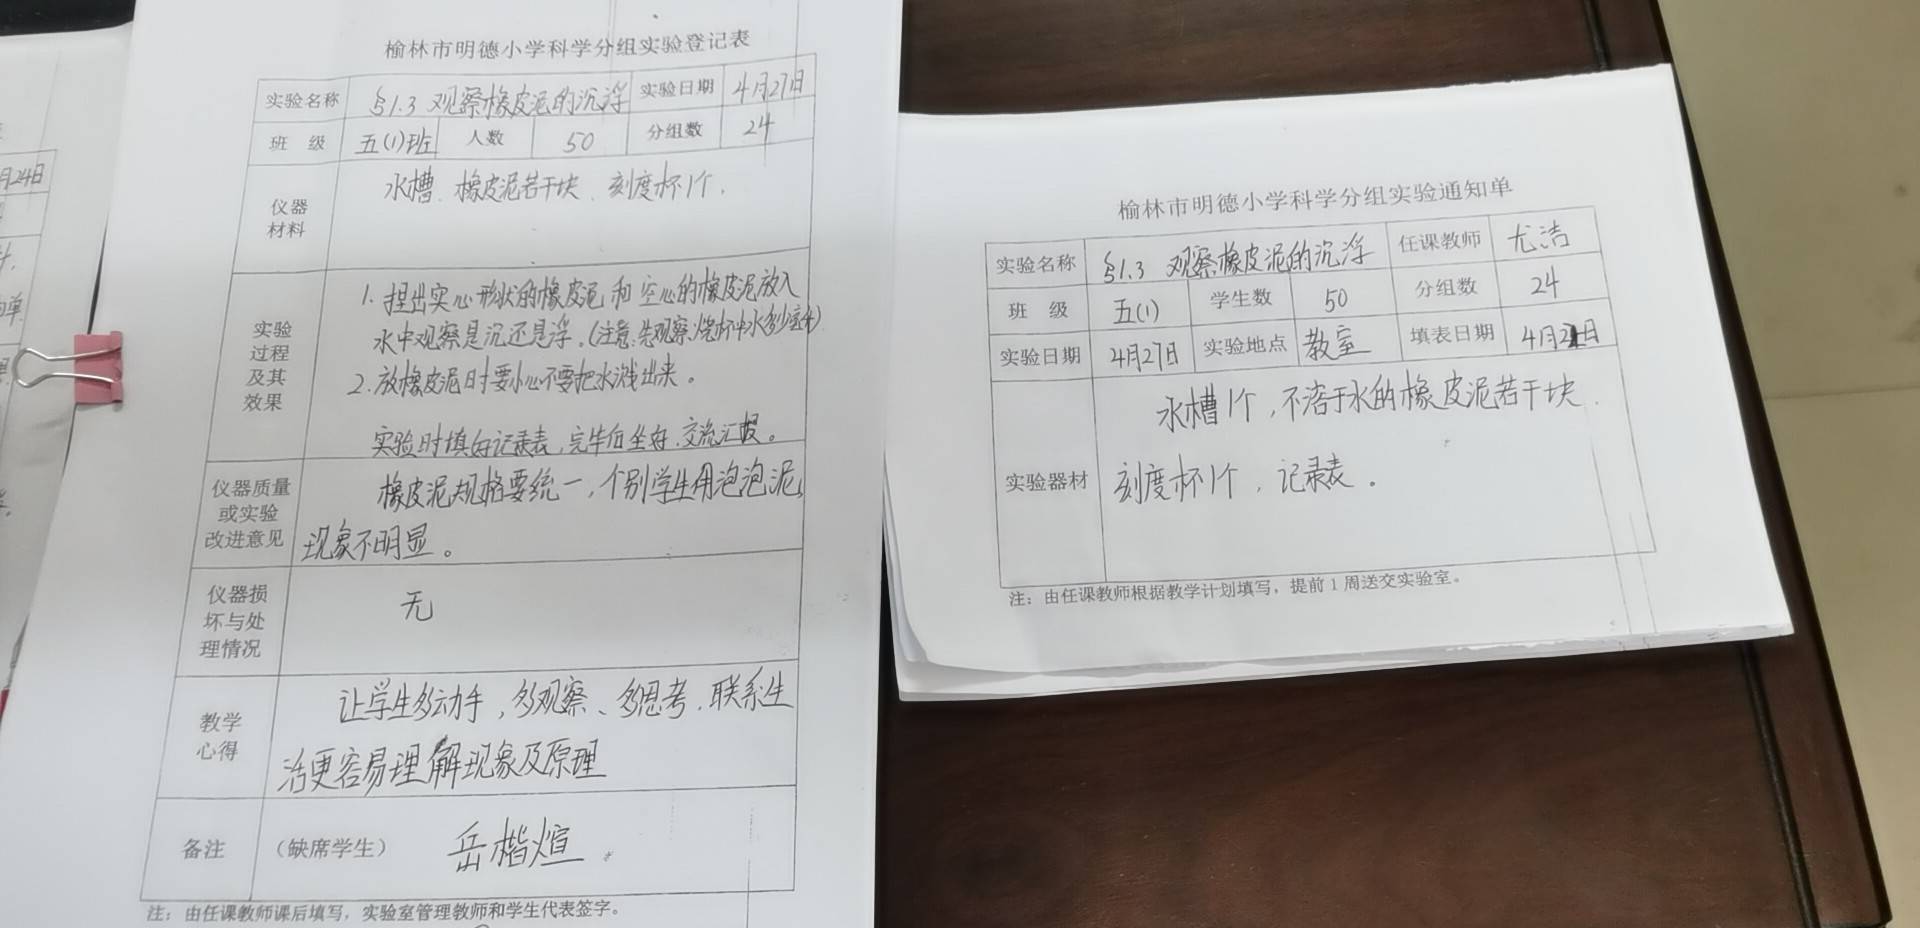 榆林市明德小学科学分组实验登记表
实验名称 §1.3 观察橡皮泥的沉浮 实验日期 4月27日
班 级 五(1)班 人数 50 分组数 24
仪器
材料
水槽、橡皮泥若干块、刻度杯1个.
实验
过程
及其
效果
1. 捏出实心形状的橡皮泥和空心的橡皮泥放入
水中观察是沉还是浮。(注意:先观察烧杯中水
2. 放橡皮泥时要小心不要把水溅出来。
实验时填好记录表,完毕后坐好,交流汇报。
仪器质量
或实验
改进意见
橡皮泥规格要统一,个别学生用泡泡泥,
现象不明显。
仪器损
坏与处
理情况
无
教学
心得
让学生多动手,多观察、多思考.联系生
活更容易理解现象及原理
备注 (缺席学生) 岳楷煊.
注:由任课教师课后填写,实验室管理教师和学生代表签字。
榆林市明德小学科学分组实验通知单
实验名称 §1.3 观察橡皮泥的沉浮 任课教师 尤洁
班 级 五(1) 学生数 50 分组数 24
实验日期 4月27日 实验地点 教室 填表日期 4月21日
实验器材
水槽1个,不溶于水的橡皮泥若干块.
刻度杯1个,记录表。
注:由任课教师根据教学计划填写,提前1周送交实验室。
月24日